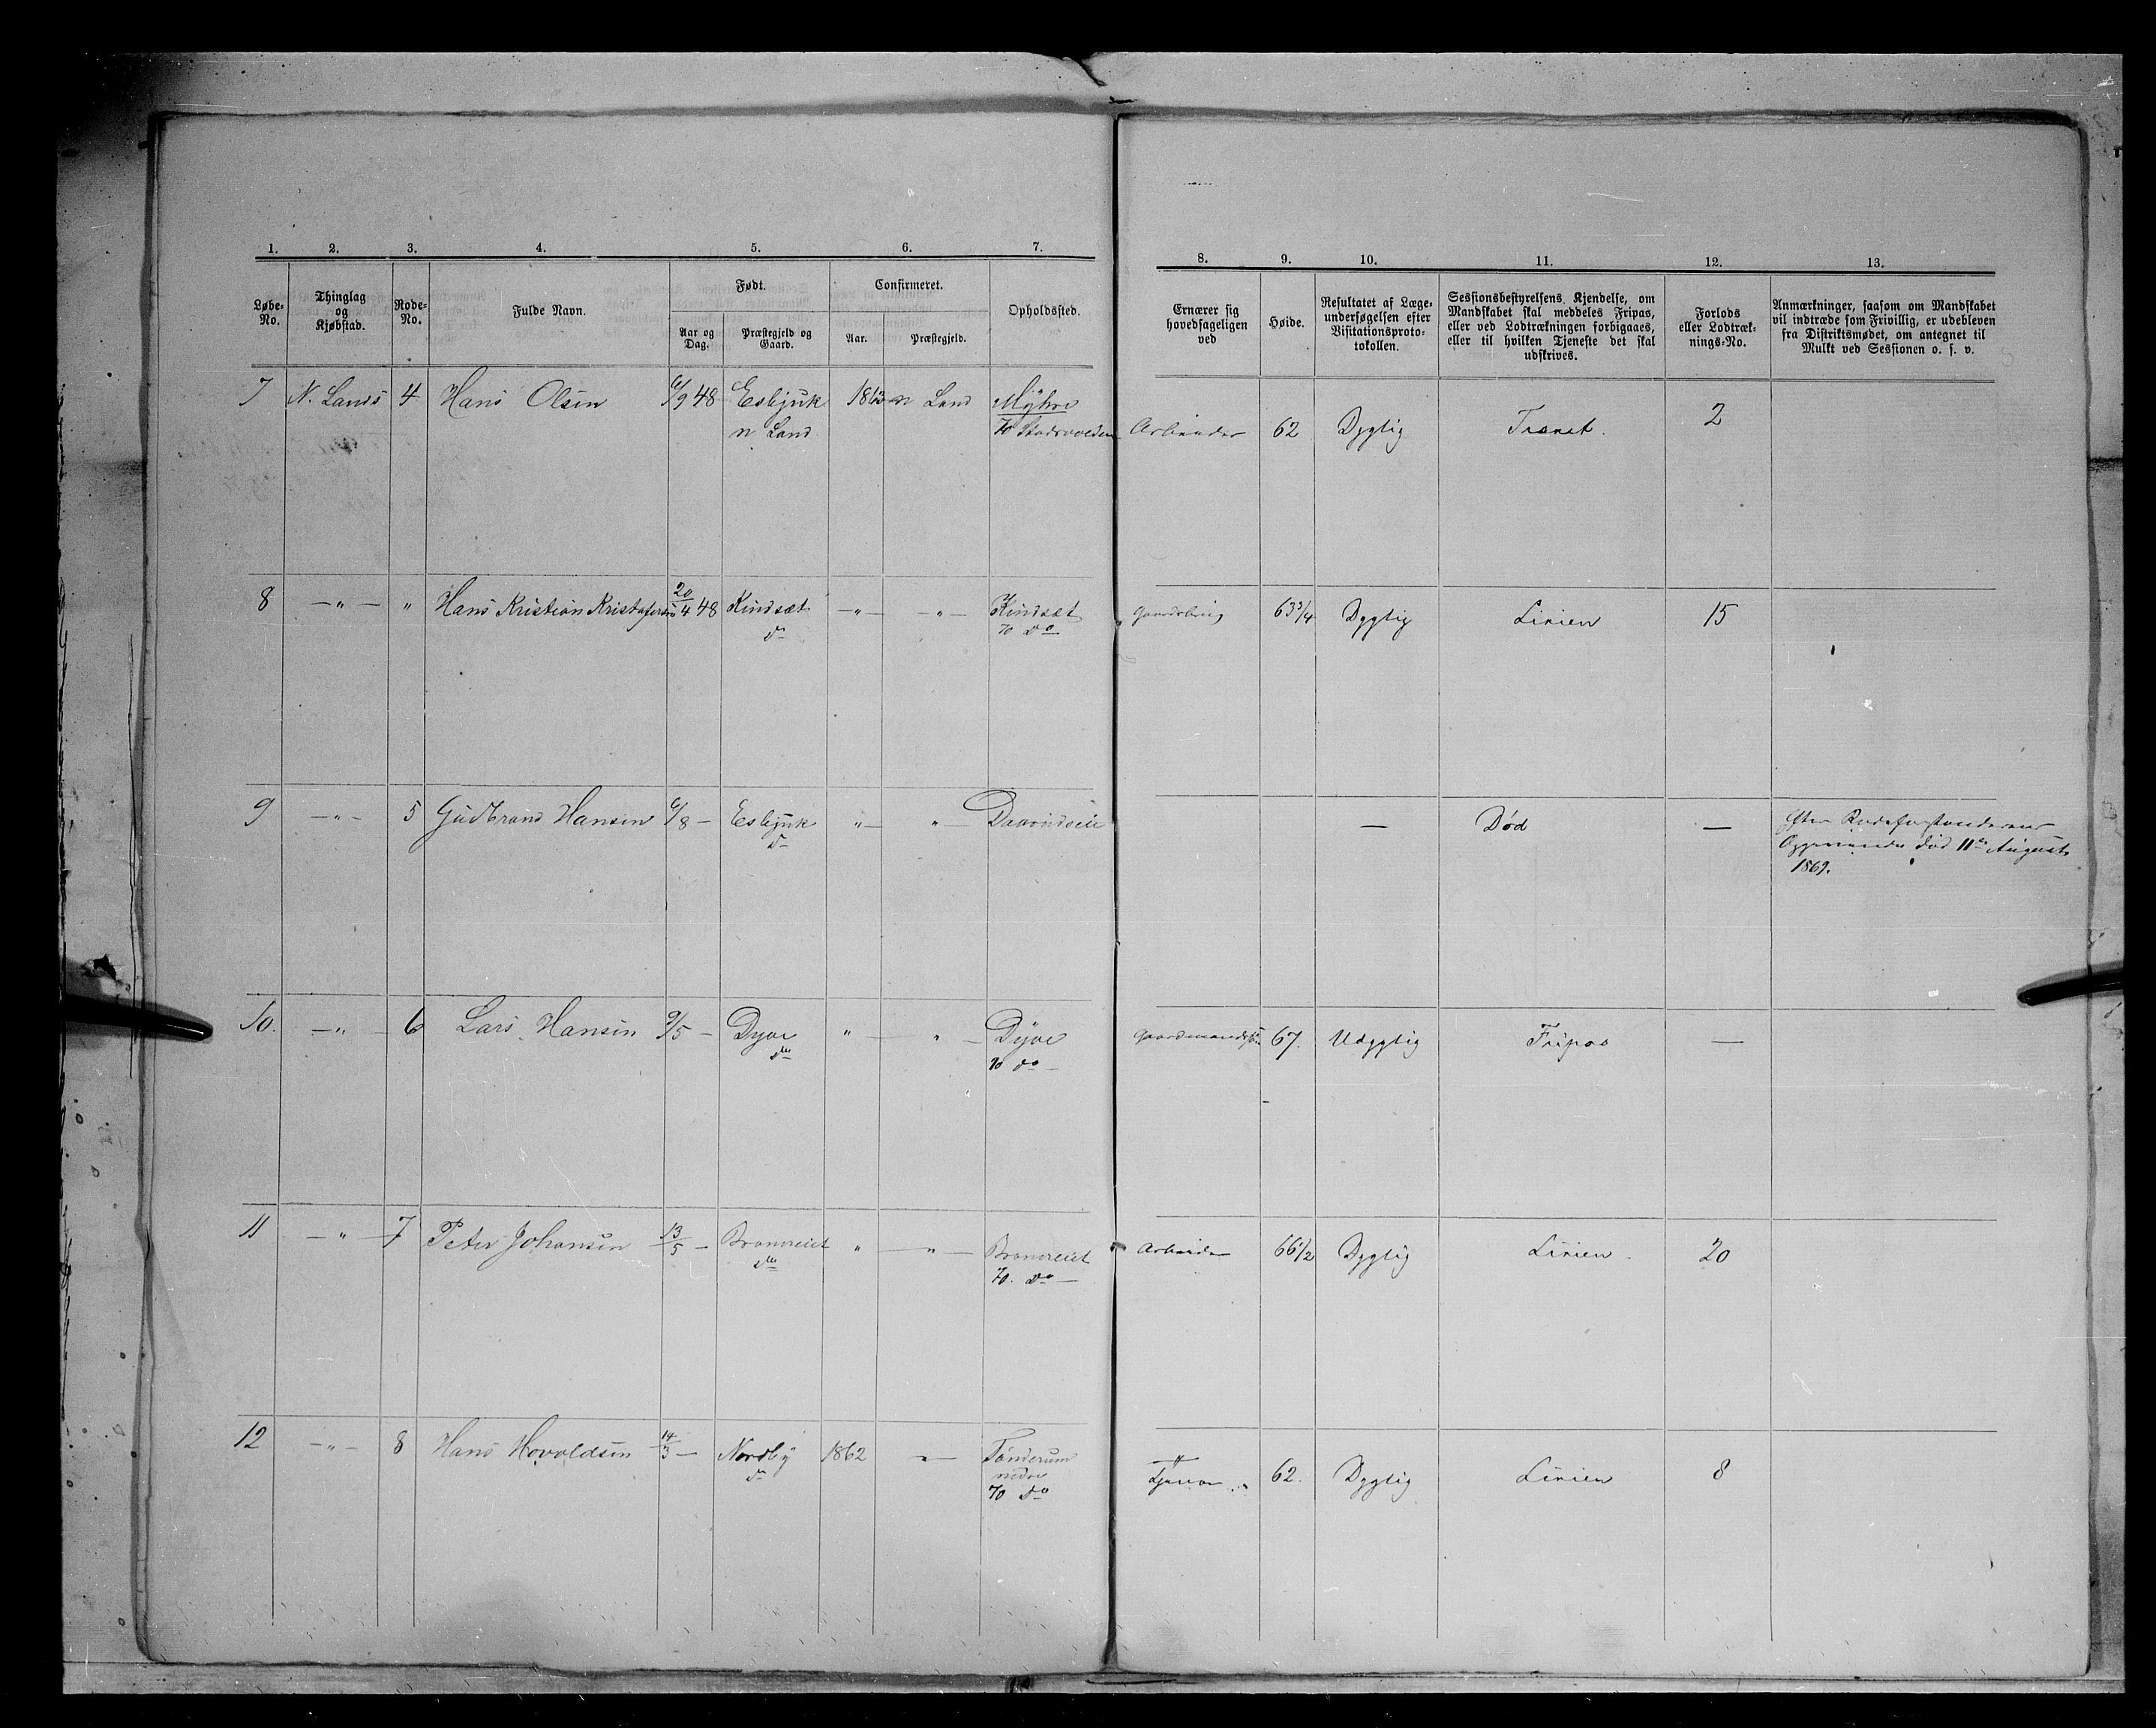 1. 2. 3. 4. 5. 6. 7. 8. 9. 10. 11. 12. 13.
Løbe-No.
Thinglag og Kjøbstad.
Rode-No.
Fulde Navn.
Født.
Aar og Dag.
Præstegjeld og Gaard.
Confirmeret.
Aar.
Præstegjeld.
Opholdssted.
Ernærer sig hovedsageligen ved
Høide.
Resultatet af Læge-undersøgelsen efter Visitationsproto-tokollen.
Sessionsbestyrelsens Kjendelse, om Mandskabet skal meddeles Fripas, eller ved Lodtrækningen forbigaaes, eller til hvilken Tjeneste det skal udskrives.
Forlods eller Lodtræk-nings-No.
Anmærkninger, saasom om Mandskabet vil indtræde som Frivillig, er udebleven fra Distriktsmødet, om antegnet til Mulkt ved Sessionen o. s. v.
7 N. Lands 4 Hans Olsen 6/9 48 Esbjuk 1863 n Land Myhre
n Land 70 Arbeider 62 Dygtig Trænet. 2
8 —"— " Hans Kristian Kristofersen 20/4 48 Kindsæt —"— —"— Kindsæt Gaardbrug 63 3/4 Dygtig Linien 15
do 70 do
9 —"— 5 Gudbrand Hansen 6/8 — Esbjuk "— "— — Død — Efter Rodeforstanderens
do Opgivende død 11te August
1869.
10. —"— 6 Lars Hansen 9/5 — Dyve "— "— Dyve 67. Udygtig Fripas —
do 70 do —
11 —"— 7 Peter Johansen 13/5 — Brandreiet " —"— Brandreiet Arbeider 66 1/2 Dygtig Linien. 20
do 70. do —
12 —"— 8 Hans Hovoldsen 14/3 — Nordby 1862 —"— Tønderum
do nedre 62. Dygtig Linien 8
70 do